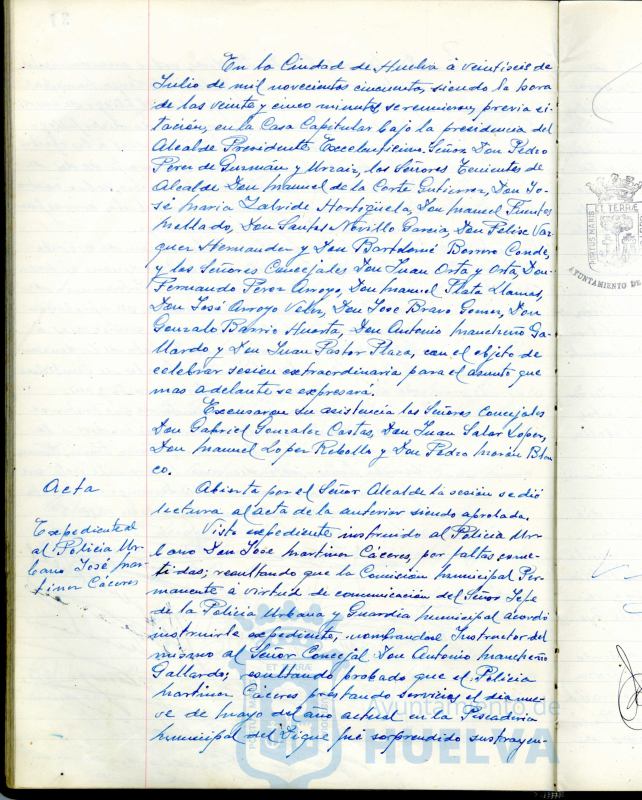 En la Ciudad de Huelva á veintiseis de
Julio de mil novecientos cincuenta, siendo la hora
de las veinte y cinco minutos, se reunieron, previa ci-
tación, en la Casa Capitular bajo la presidencia del
Alcalde Presidente Excelentísimo Señor Don Pedro
Perez de Guzmán y Urzaiz, los Señores Tenientes de
Alcalde Don Manuel de la Corte Gutierrez, Don Jo-
sé Maria Zalvide Hortigüela, Don Manuel Fuentes
Mallado, Don Santos Novillo Garcia, Don Felix Vaz-
quez Hernandez y Don Bartolomé Borrero Conde,
y los Señores Concejales Don Juan Orta y Orta, Don
Fernando Perez Arroyo, Don Manuel Plata Llamas,
Don José Arroyo Velez, Don Jose Bravo Gomez, Don
Gonzalo Barrio Huerta, Don Antonio Mancheño Ga-
llardo y Don Juan Pastor Plaza, con el objeto de
celebrar sesion extraordinaria para el asunto que
mas adelante se expresará.
Excusaron su asistencia los Señores Concejales
Don Gabriel Gonzalez Costas, Don Juan Salar Lopez,
Don Manuel Lopez Rebollo y Don Pedro Morón Blan-
co.
Acta
Abierta por el Señor Alcalde la sesión se dió
lectura al acta de la anterior siendo aprobada.
Expediente al
al Policia Ur-
bano José Mar-
tinez Cáceres
Visto expediente instruido al Policia Ur-
bano Don Jose Martinez Cáceres, por faltas come-
tidas; resultando que la Comisión Municipal Per-
manente a virtud de comunicación del Señor Jefe
de la Policia Urbana y Guardia Municipal acordó
instruirle expediente, nombrandose Instructor del
mismo al Señor Concejal Don Antonio Mancheño
Gallardo; resultando probado que el Policia
Martinez Cáceres prestando servicios el dia nue-
ve de mayo del año actual en la Pescaderia
Municipal del Dique fué sorprendido sustrayen-
Ayuntamiento de
HUELVA
ET TERRÆ
AYUNTAMIENTO DE